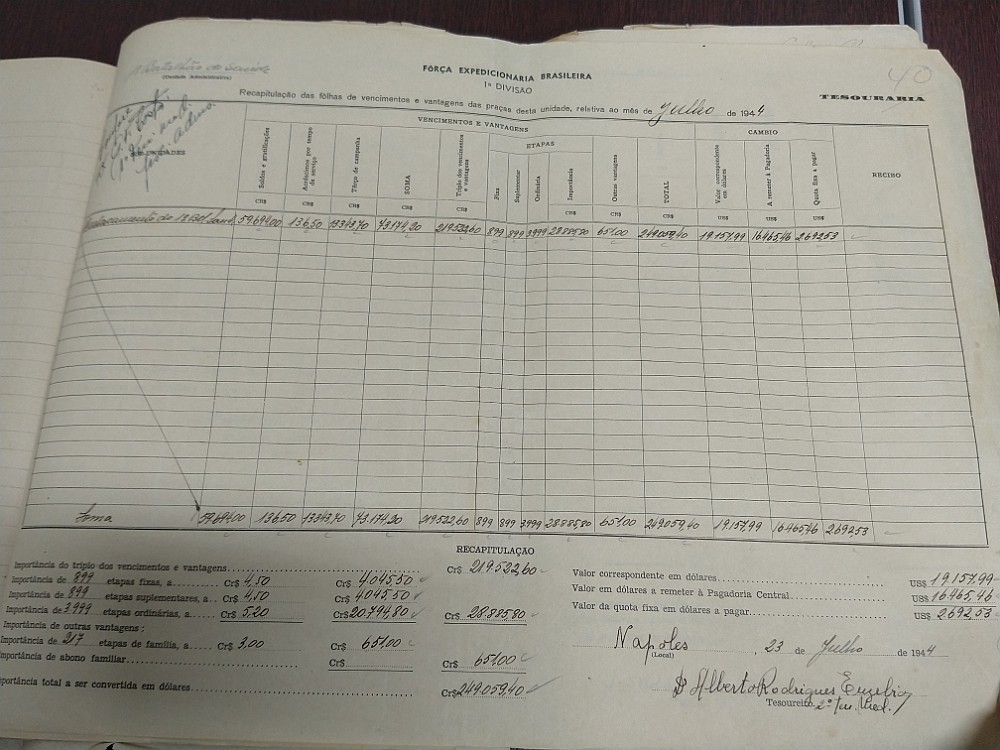 1º Batalhão de Saúde
FÔRÇA EXPEDICIONARIA BRASILEIRA
1ª DIVISAO
40
TESOURARIA
Recapitulação das fôlhas de vencimentos e vantagens das praças desta unidade, relativa ao mês de Julho de 1944
VENCIMENTOS E VANTAGENS
CAMBIO
ETAPAS
RECIBO
Soldos e gratificações
Acréscimos por tempo de serviço
Têrço de campanha
SOMA
Triplo dos vencimentos e vantagens
Fixa
Suplementar
Ordinária
Importância
Outras vantagens
TOTAL
Valor correspondente em dólares
A remeter à Pagadoria
Quota fixa a pagar
CR$ CR$ CR$ CR$ CR$ CR$ CR$ CR$ US$ US$ US$
do 1º Btl. Saude 59.694,00 136,50 13.343,70 73.174,20 219.522,60 899 899 3999 28.885,80 651,00 249.059,40 19.157,99 16.465,46 2.692,53
Soma 59.694,00 136,50 13.343,70 73.174,20 219.522,60 899 899 3999 28.885,80 651,00 249.059,40 19.157,99 16.465,46 2.692,53
RECAPITULAÇÃO
Importância do triplo dos vencimentos e vantagens Cr$ 219.522,60
Importância de 899 etapas fixas, a Cr$ 4,50 Cr$ 4.045,50
Importância de 899 etapas suplementares, a Cr$ 4,50 Cr$ 4.045,50
Importância de 3999 etapas ordinárias, a Cr$ 5,20 Cr$ 20.794,80 Cr$ 28.885,80
Importância de outras vantagens:
Importância de 217 etapas de família, a Cr$ 3,00 Cr$ 651,00
Importância de abono familiar Cr$ Cr$ 651,00
Importância total a ser convertida em dólares Cr$ 249.059,40
Valor correspondente em dólares US$ 19.157,99
Valor em dólares a remeter à Pagadoria Central US$ 16.465,46
Valor da quota fixa em dólares a pagar US$ 2.692,53
Napoles, 23 de Julho de 1944
(Local)
Alberto Rodrigues
Tesoureiro 2º Ten.